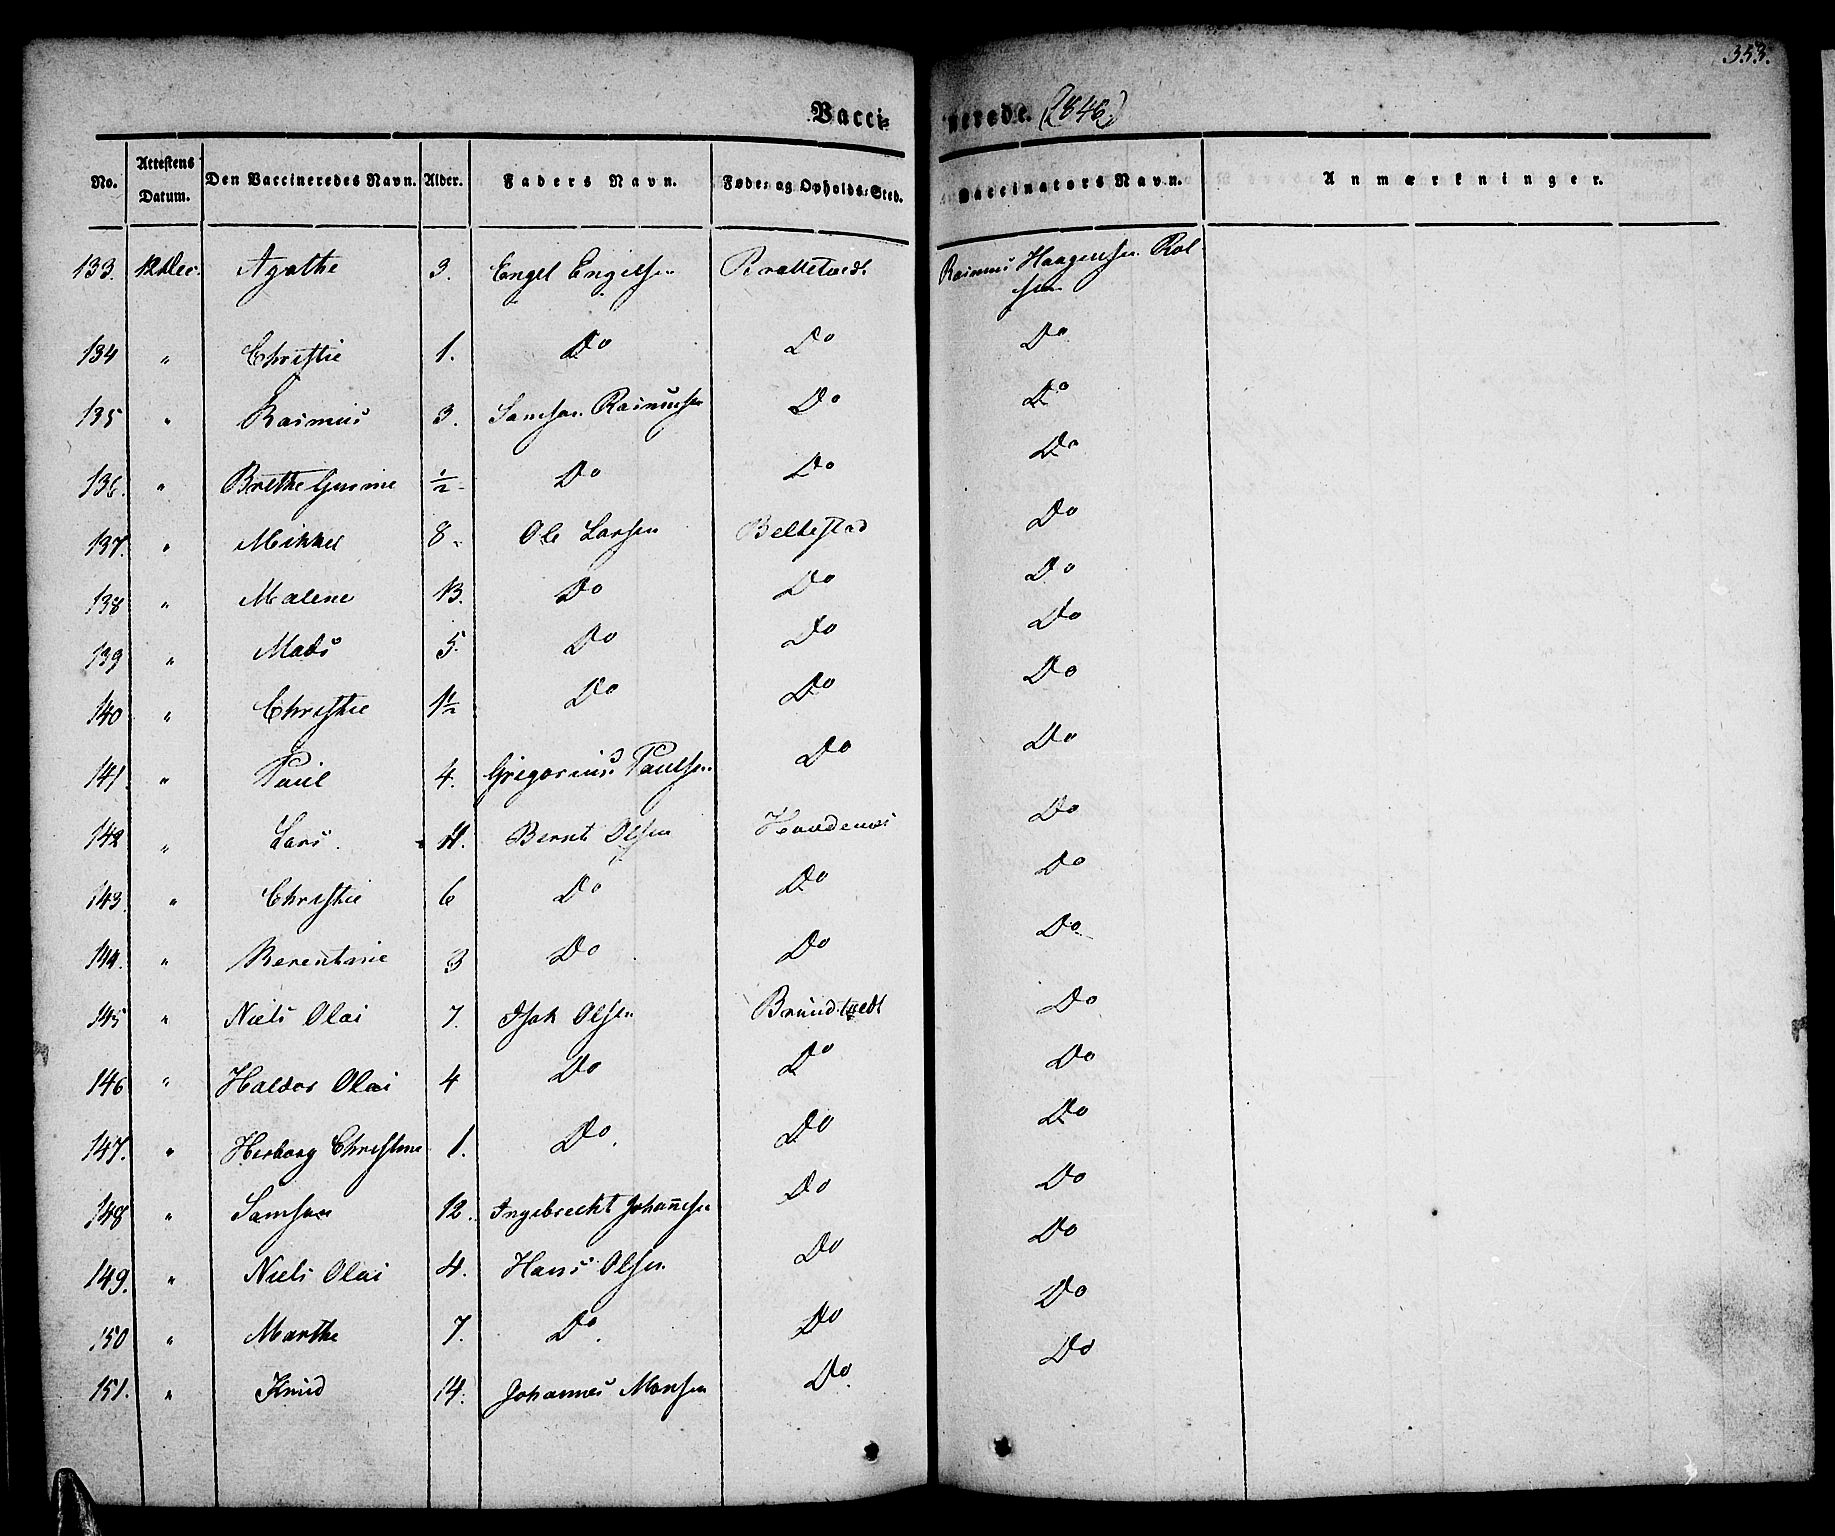 353.
Vacci- nerede. (1846)
No. Attestens Datum. Den Vaccineredes Navn. Alder. Faders Navn. Føde- og Opholds-Sted. Vaccinators Navn. Anmærkninger.
133. 12 Dec. Agathe 3. Engel Engelsen Brattetvedt Rasmus Haagensen Rol
sen
134 " Christie 1. Do Do Do
135 " Rasmus 3. Samson Rasmussen Do Do
136. " Brethe Gurine ½ Do Do Do
137. " Mikkel 8. Ole Larsen Beltestad Do
138 " Malene 13. Do Do Do
139 " Mads 5. Do Do Do
140 " Christie 1½ Do Do Do
141. " Paul 4. Gregorius Paulsen Do Do
142 " Lars. 11. Bernt Olsen Do
143. " Christie 6 Do Do Do
144. " Berentine 3 Do Do Do
145 " Niels Olai 7. Isak Olsen Brundtvedt Do
146 " Haldor Olai 4 Do Do Do
147. " Herborg Christine 1. Do. Do Do
148 " Samson 12. Ingebrecht Johannesen Do Do
149. " Niels Olai 4. Hans Olsen Do Do
150 " Marthe 7. Do. Do Do
151. " Knud 14. Johannes Monsen Do. Do